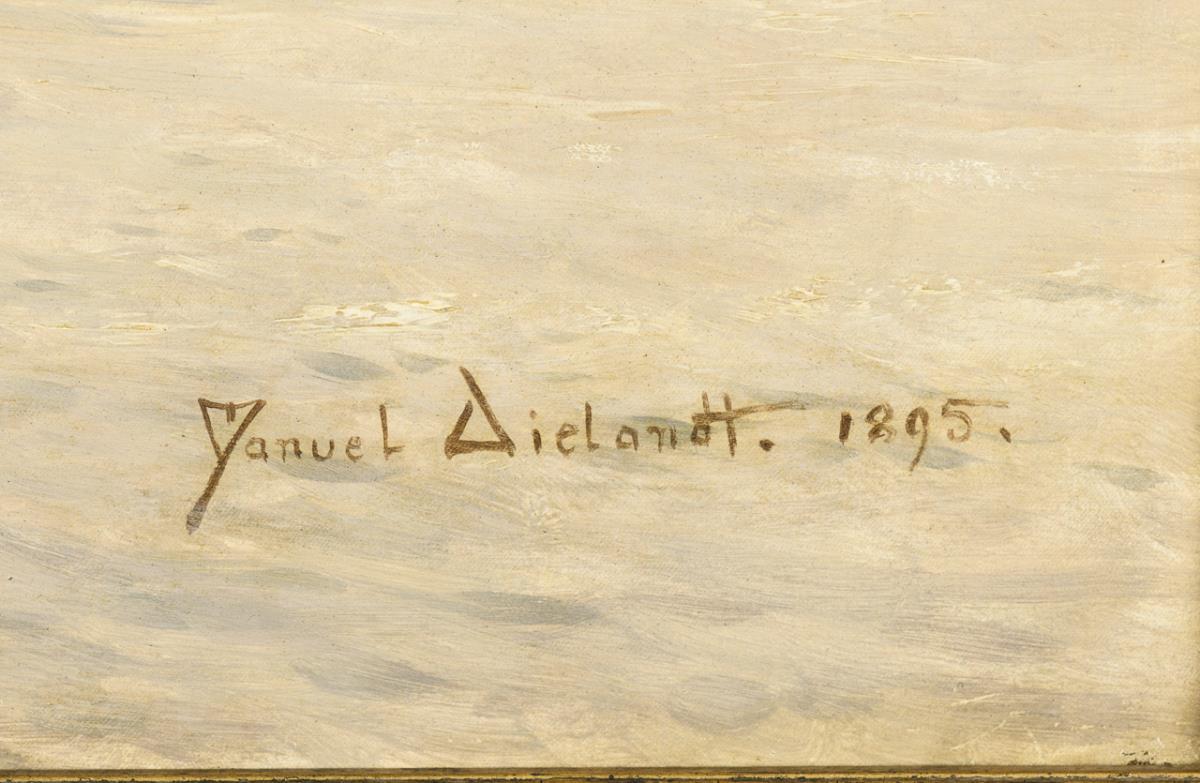 Manuel Dielandt. 1895.